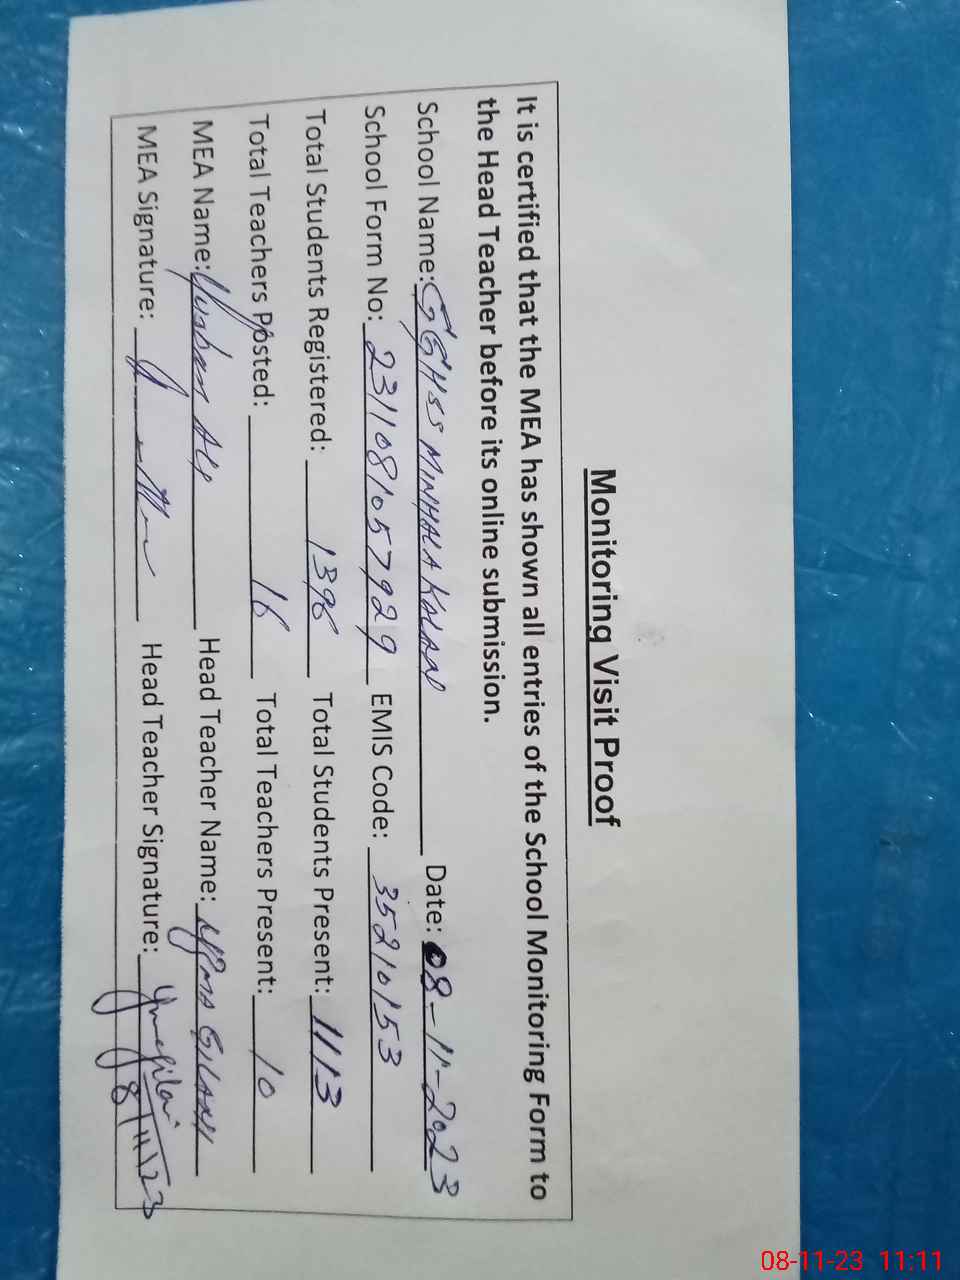 Monitoring Visit Proof
It is certified that the MEA has shown all entries of the School Monitoring Form to
the Head Teacher before its online submission.
School Name: GGHSS MINHALA KALAN Date: 08-11-2023
School Form No: 2311081057929 EMIS Code: 35210153
Total Students Registered: 1396 Total Students Present: 1113
Total Teachers Posted: 16 Total Teachers Present: 10
MEA Name: Ali Head Teacher Name: GILANI
MEA Signature: Head Teacher Signature:
8/11/23
08-11-23 11:11